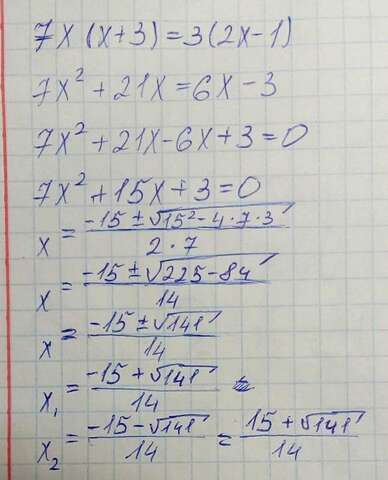 7x (x+3) = 3(2x-1)
7x² + 21x = 6x - 3
7x² + 21x - 6x + 3 = 0
7x² + 15x + 3 = 0
x = (-15 ± √(15² - 4·7·3)) / (2·7)
x = (-15 ± √(225 - 84)) / 14
x = (-15 ± √141) / 14
x₁ = (-15 + √141) / 14
x₂ = (-15 - √141) / 14 = (15 + √141) / 14